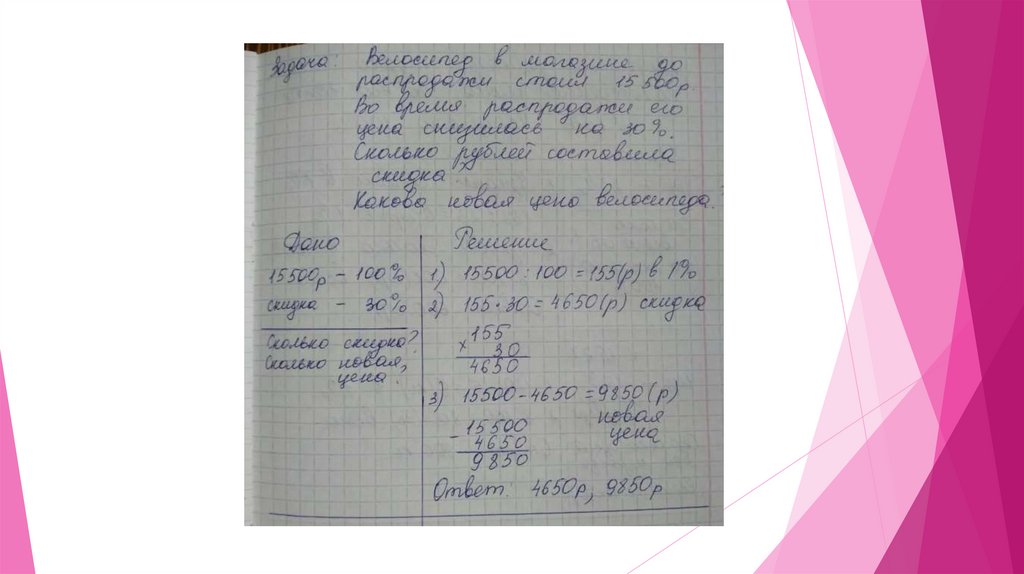 Задача: Велосипед в магазине до
распродажи стоил 15500р
Во время распродажи его
цена снизилась на 30%.
Сколько рублей составила
скидка?
Какова новая цена велосипеда?
Дано
15500р – 100%
скидка – 30%
Сколько скидка?
Сколько новая,
цена?
Решение
1) 15500 : 100 = 155(р) в 1%
2) 155 · 30 = 4650(р) скидка
155
х 30
4650
3) 15500 - 4650 = 9850(р)
новая
цена
15500
- 4650
9850
Ответ: 4650р, 9850р